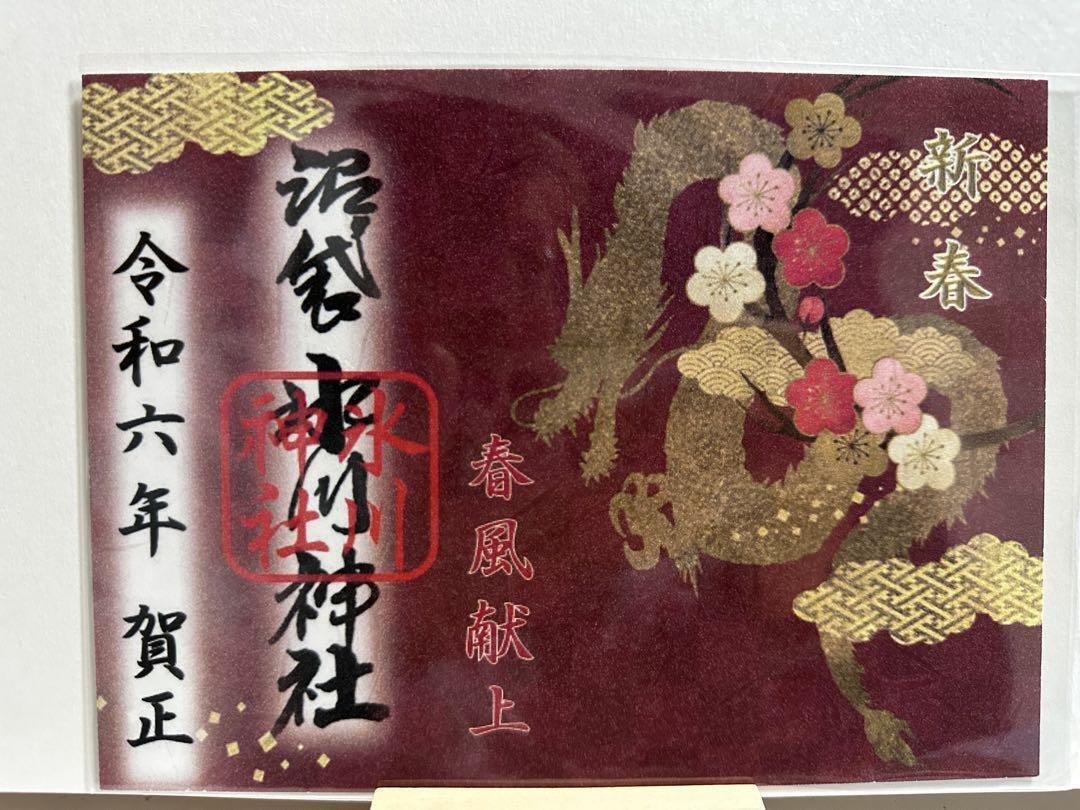 新春
春風献上
沼袋氷川神社
氷川
神社
令和六年 賀正